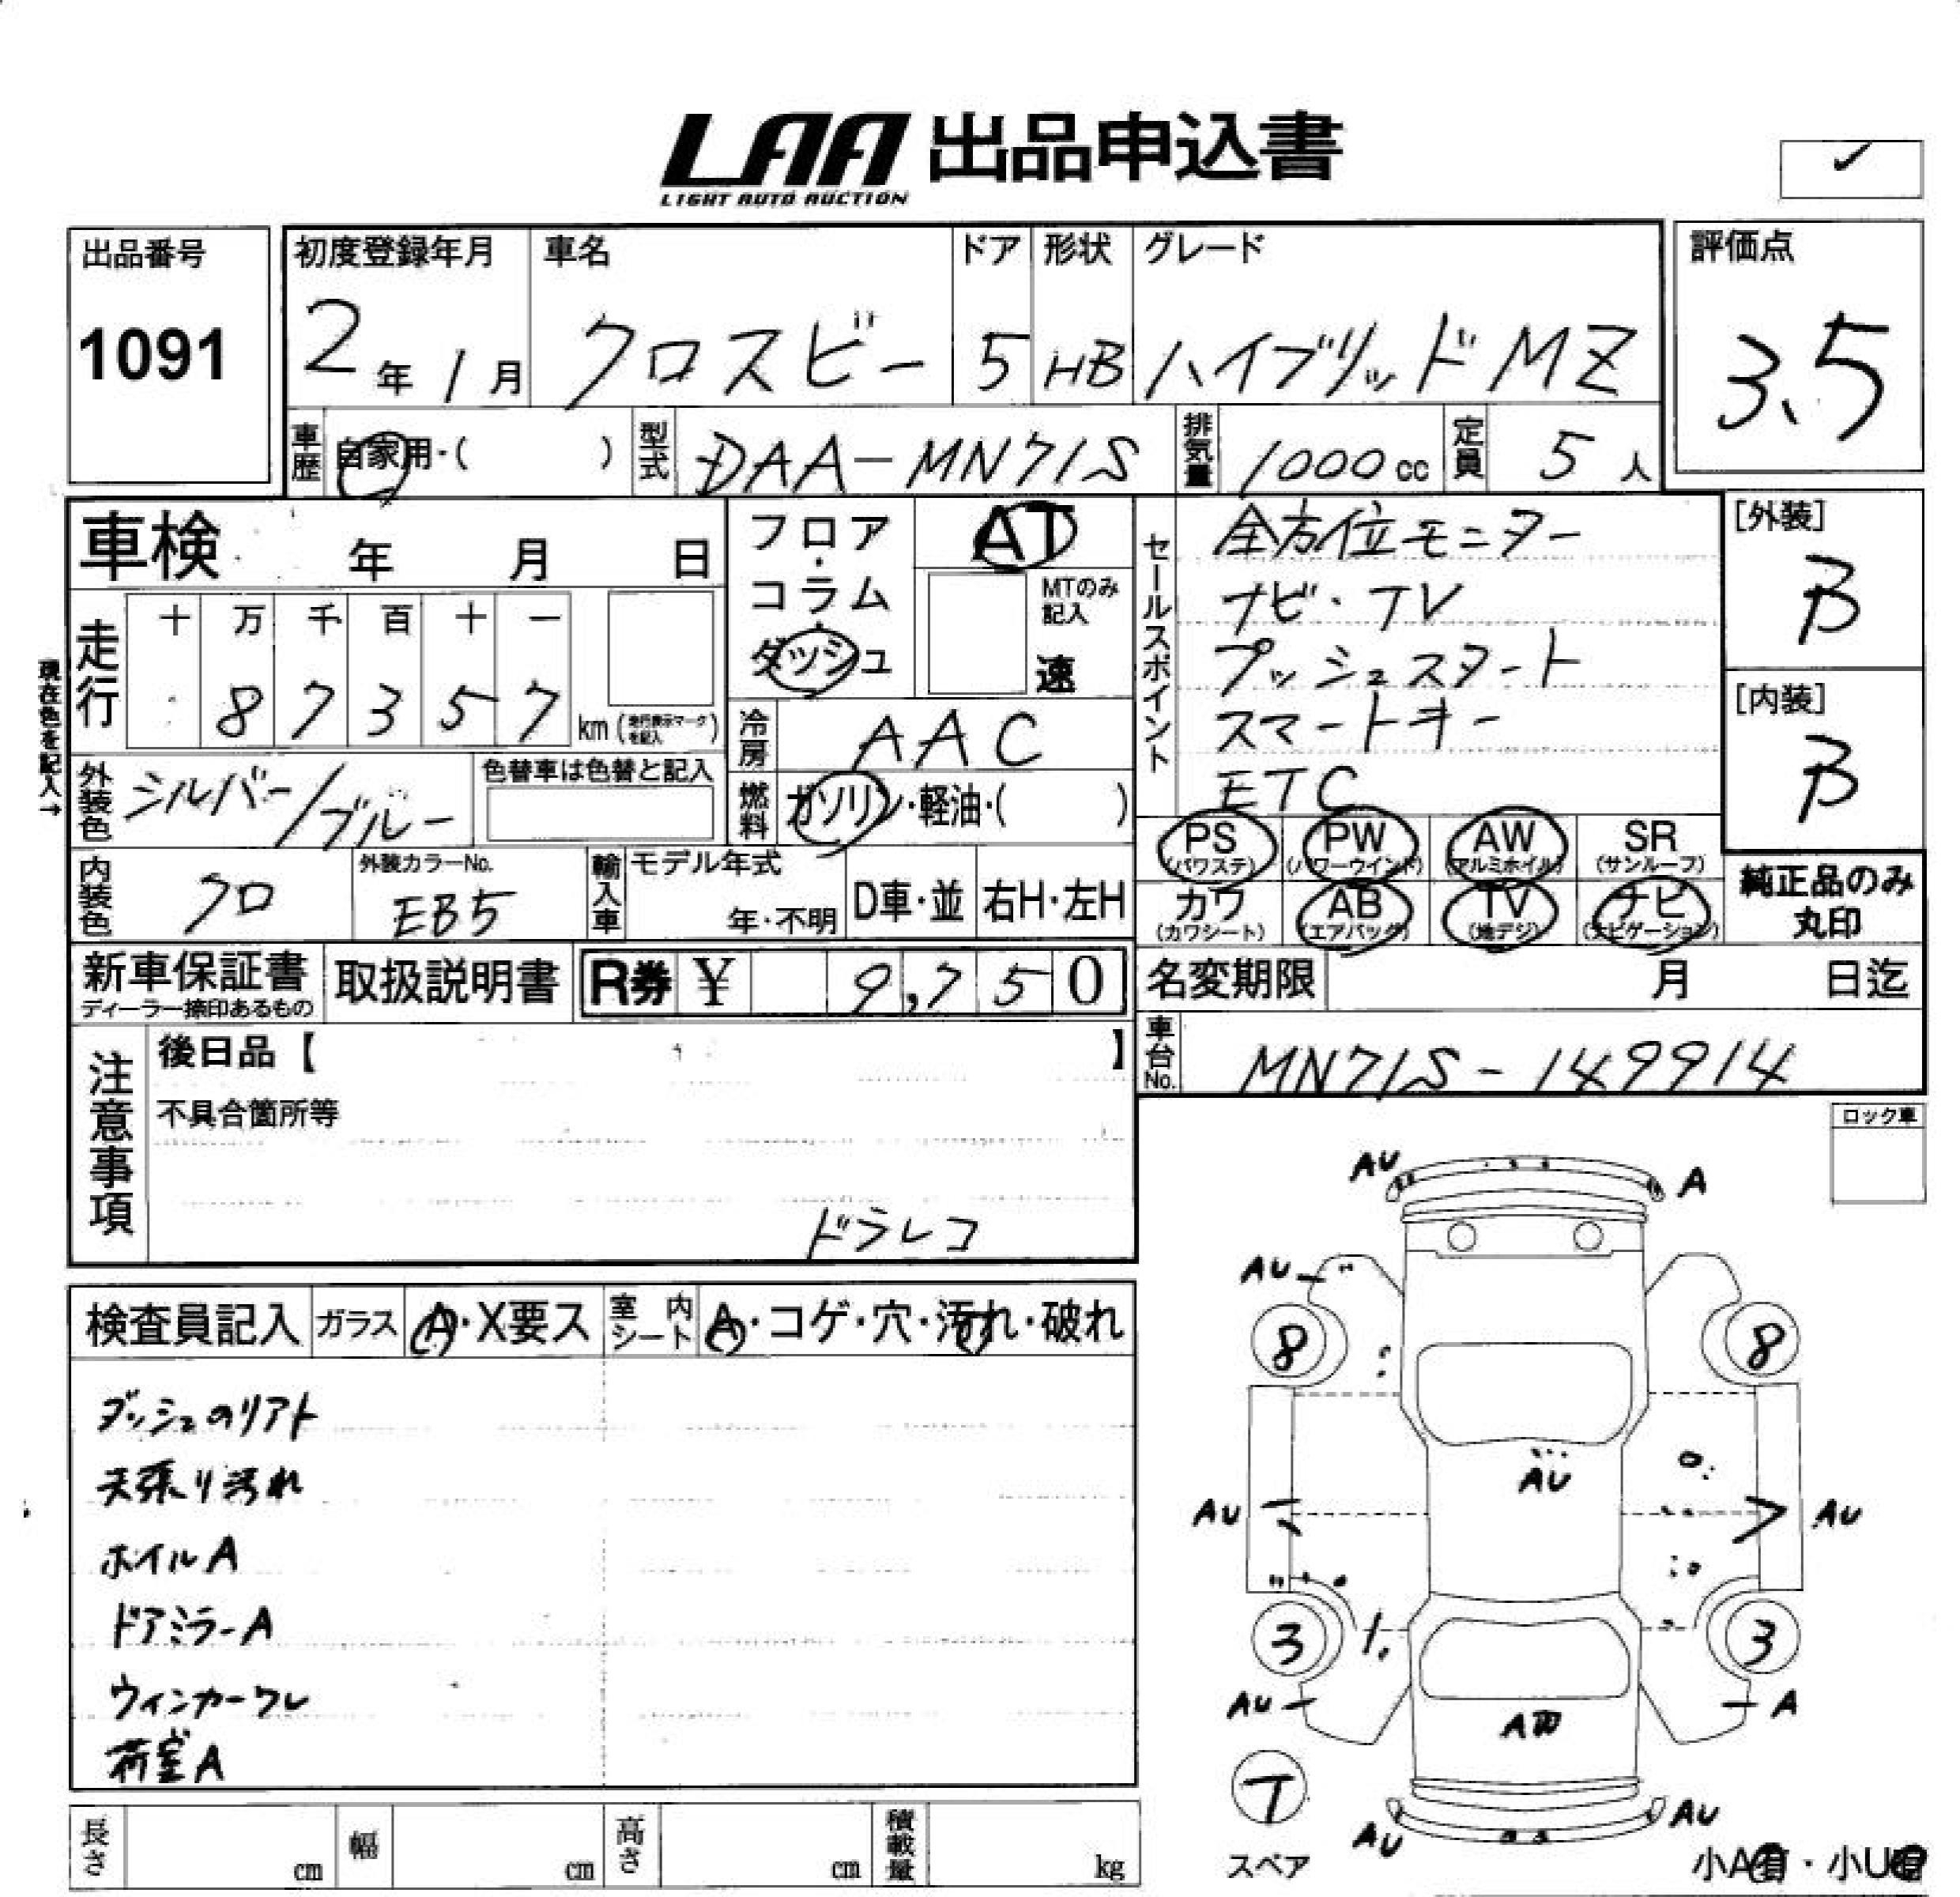 LAA 出品申込書
LIGHT AUTO AUCTION
✓
出品番号 1091
初度登録年月 2年1月
車名 クロスビー
ドア 5
形状 HB
グレード ハイブリッドMZ
評価点 3.5
車歴 自家用・( )
型式 DAA-MN71S
排気量 1000cc
定員 5人
車検 年 月 日
フロア・コラム・ダッシュ
AT
MTのみ記入
速
セールスポイント
全方位モニター
ナビ・TV
プッシュスタート
スマートキー
ETC
[外装] B
[内装] B
現在色を記入→
走行 十 万 千 百 十 一
8 7 3 5 7 km (走行表示マークを記入)
冷房 AAC
外装色 シルバー/ブルー
色替車は色替と記入
燃料 ガソリン・軽油・( )
PS (パワステ) PW (パワーウインド) AW (アルミホイル) SR (サンルーフ)
カワ (カワシート) AB (エアバッグ) TV (地デジ) ナビ (ナビゲーション)
純正品のみ丸印
内装色 クロ
外装カラーNo. EB5
輸入車 モデル年式 年・不明 D車・並 右H・左H
新車保証書
ディーラー捺印あるもの
取扱説明書
R券 ¥ 9,750
名変期限 月 日迄
車台No. MN71S-149914
注意事項
後日品【 】
不具合箇所等
ドラレコ
ロック車
検査員記入 ガラス A・X要ス 室内シート A・コゲ・穴・汚れ・破れ
ダッシュのリアト
天張り汚れ
ホイルA
ドアミラーA
ウィンカーワレ
荷室A
AU A
AU
8 8
AU
AU AU
3 3
AU A
T
スペア
AU AU
小A有・小U有
長さ cm 幅 cm 高さ cm 積載量 kg